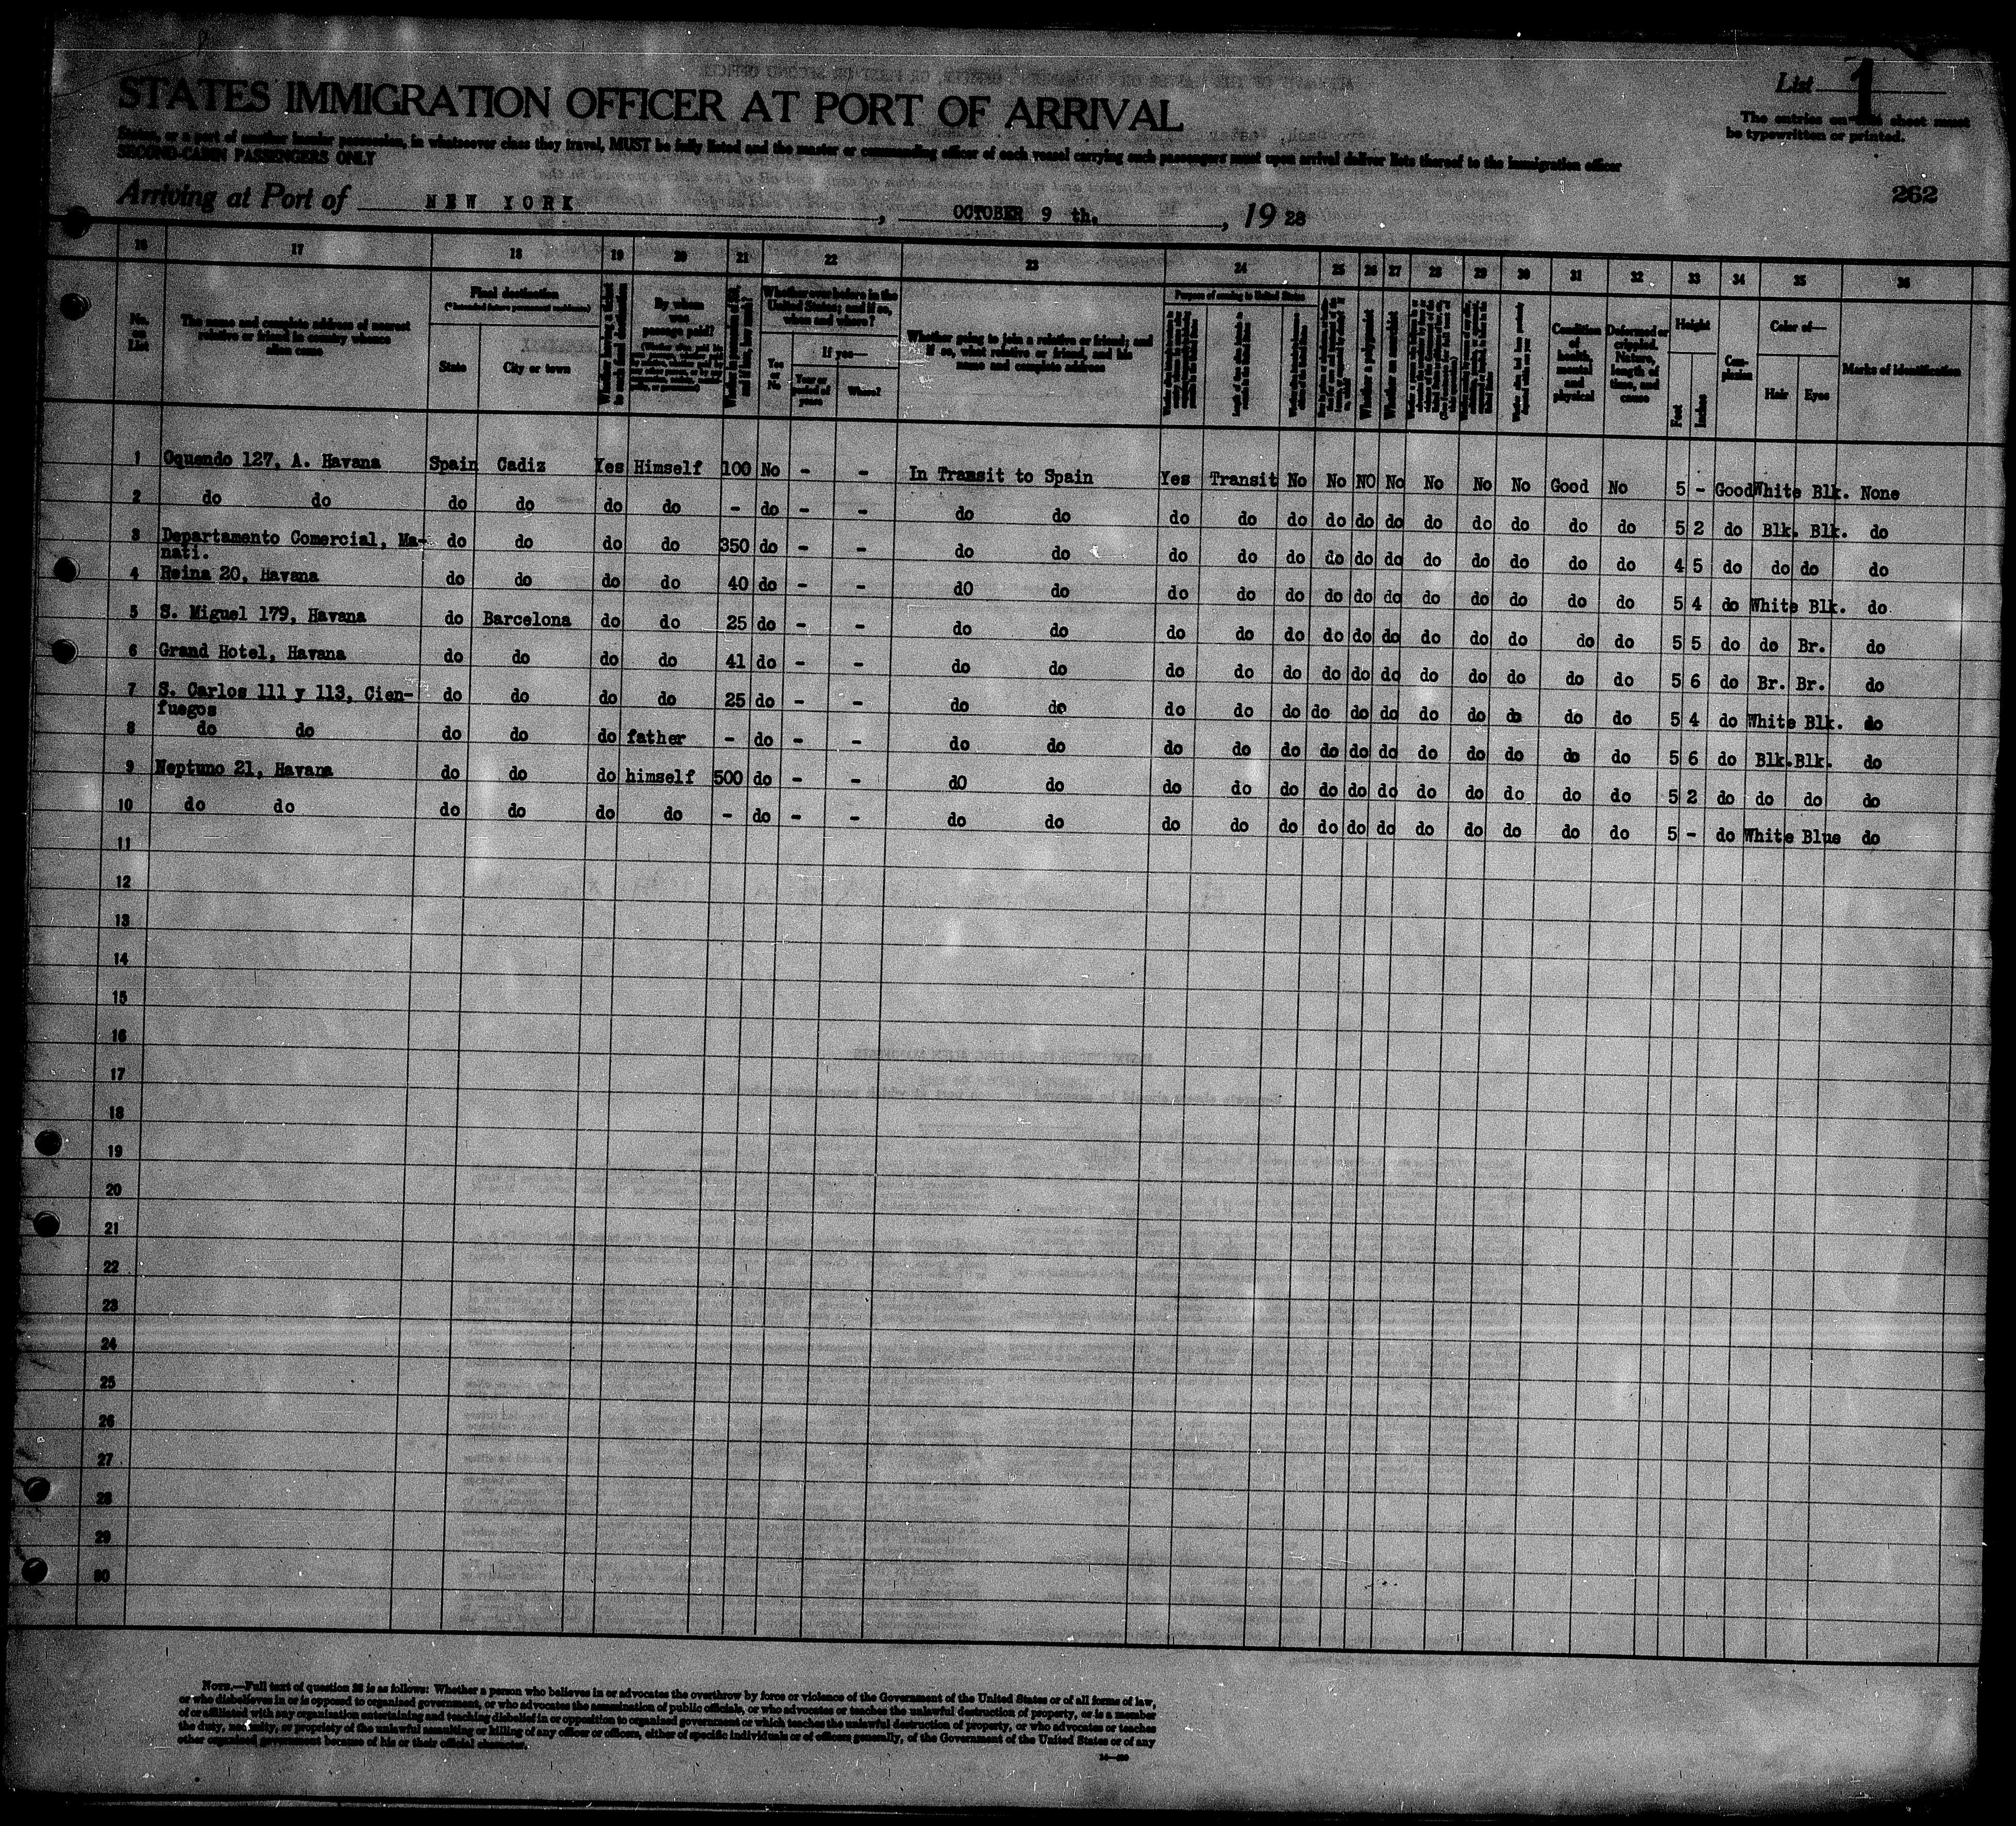 List 1
STATES IMMIGRATION OFFICER AT PORT OF ARRIVAL
The entries on this sheet must
be typewritten or printed.
States, or a port of another insular possession, in whatsoever class they travel, MUST be fully listed and the master or commanding officer of each vessel carrying such passengers must upon arrival deliver lists thereof to the immigration officer
SECOND-CABIN PASSENGERS ONLY
262
Arriving at Port of NEW YORK, OCTOBER 9 th., 19 28
16 17 18 19 20 21 22 23 24 25 26 27 28 29 30 31 32 33 34 35 36
No. on List
The name and complete address of nearest relative or friend in country whence alien came
Final destination
(*Intended future permanent residence)
State
City or town
Whether having a ticket to such final destination
By whom was passage paid?
Whether in possession of $50, and if less, how much?
Whether ever before in the United States; and if so, when and where?
Yes or No
If yes—
Year or period of years
Where?
Whether going to join a relative or friend; and if so, what relative or friend, and his name and complete address
Purpose of coming to United States
Whether a polygamist
Whether an anarchist
Condition of health, mental and physical
Deformed or crippled. Nature, length of time, and cause
Height
Feet
Inches
Complexion
Color of—
Hair
Eyes
Marks of identification
1 Oquendo 127, A. Havana Spain Cadiz Yes Himself 100 No - - In Transit to Spain Yes Transit No No NO No No No No Good No 5 - Good White Blk. None
2 do do do do do do - do - - do do do do do do do do do do do do do 5 2 do Blk. Blk. do
3 Departamento Comercial, Ma- do do do do 350 do - - do do do do do do do do do do do do do 4 5 do do do do
nati.
4 Reina 20, Havana do do do do 40 do - - dO do do do do do do do do do do do do 5 4 do White Blk. do
5 S. Miguel 179, Havana do Barcelona do do 25 do - - do do do do do do do do do do do do do 5 5 do do Br. do
6 Grand Hotel, Havana do do do do 41 do - - do do do do do do do do do do do do do 5 6 do Br. Br. do
7 S. Carlos 111 y 113, Cien- do do do do 25 do - - do do do do do do do do do do do do do 5 4 do White Blk. do
fuegos
8 do do do do do father - do - - do do do do do do do do do do do do do 5 6 do Blk. Blk. do
9 Neptuno 21, Havana do do do himself 500 do - - dO do do do do do do do do do do do do 5 2 do do do do
10 do do do do do do - do - - do do do do do do do do do do do do do 5 - do White Blue do
11
12
13
14
15
16
17
18
19
20
21
22
23
24
25
26
27
28
29
30
NOTE.—Full text of question 28 is as follows: Whether a person who believes in or advocates the overthrow by force or violence of the Government of the United States or of all forms of law,
or who disbelieves in or is opposed to organized government, or who advocates the assassination of public officials, or who advocates or teaches the unlawful destruction of property, or is a member
of or affiliated with any organization entertaining and teaching disbelief in or opposition to organized government or which teaches the unlawful destruction of property, or who advocates or teaches
the duty, necessity, or propriety of the unlawful assaulting or killing of any officer or officers, either of specific individuals or of officers generally, of the Government of the United States or of any
other organized government because of his or their official character.